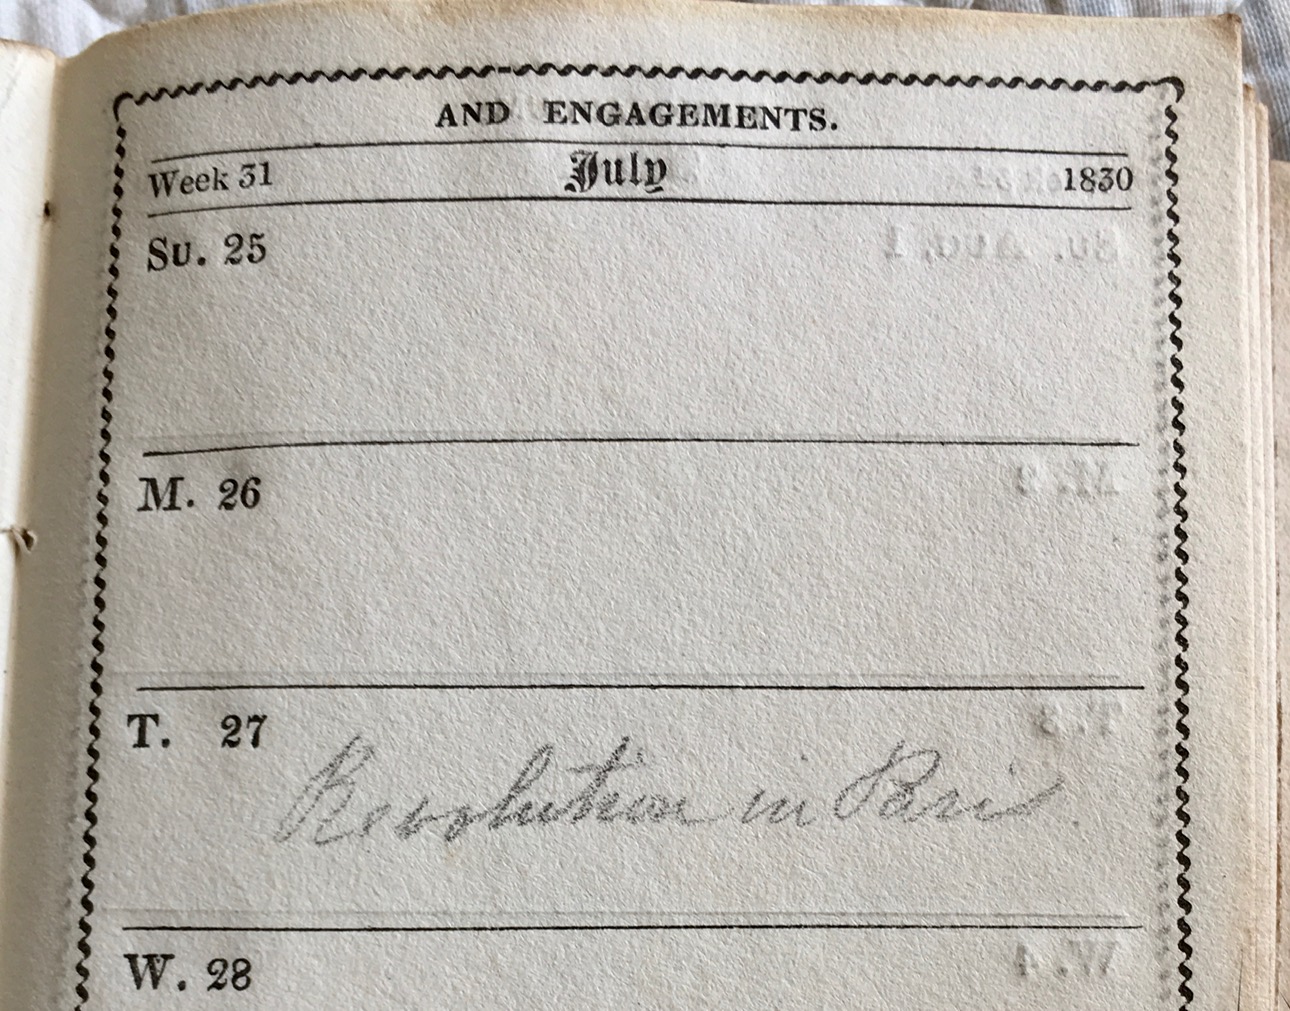 AND ENGAGEMENTS.
Week 31 July 1830
Su. 25
M. 26
T. 27
Revolution in Paris.
W. 28